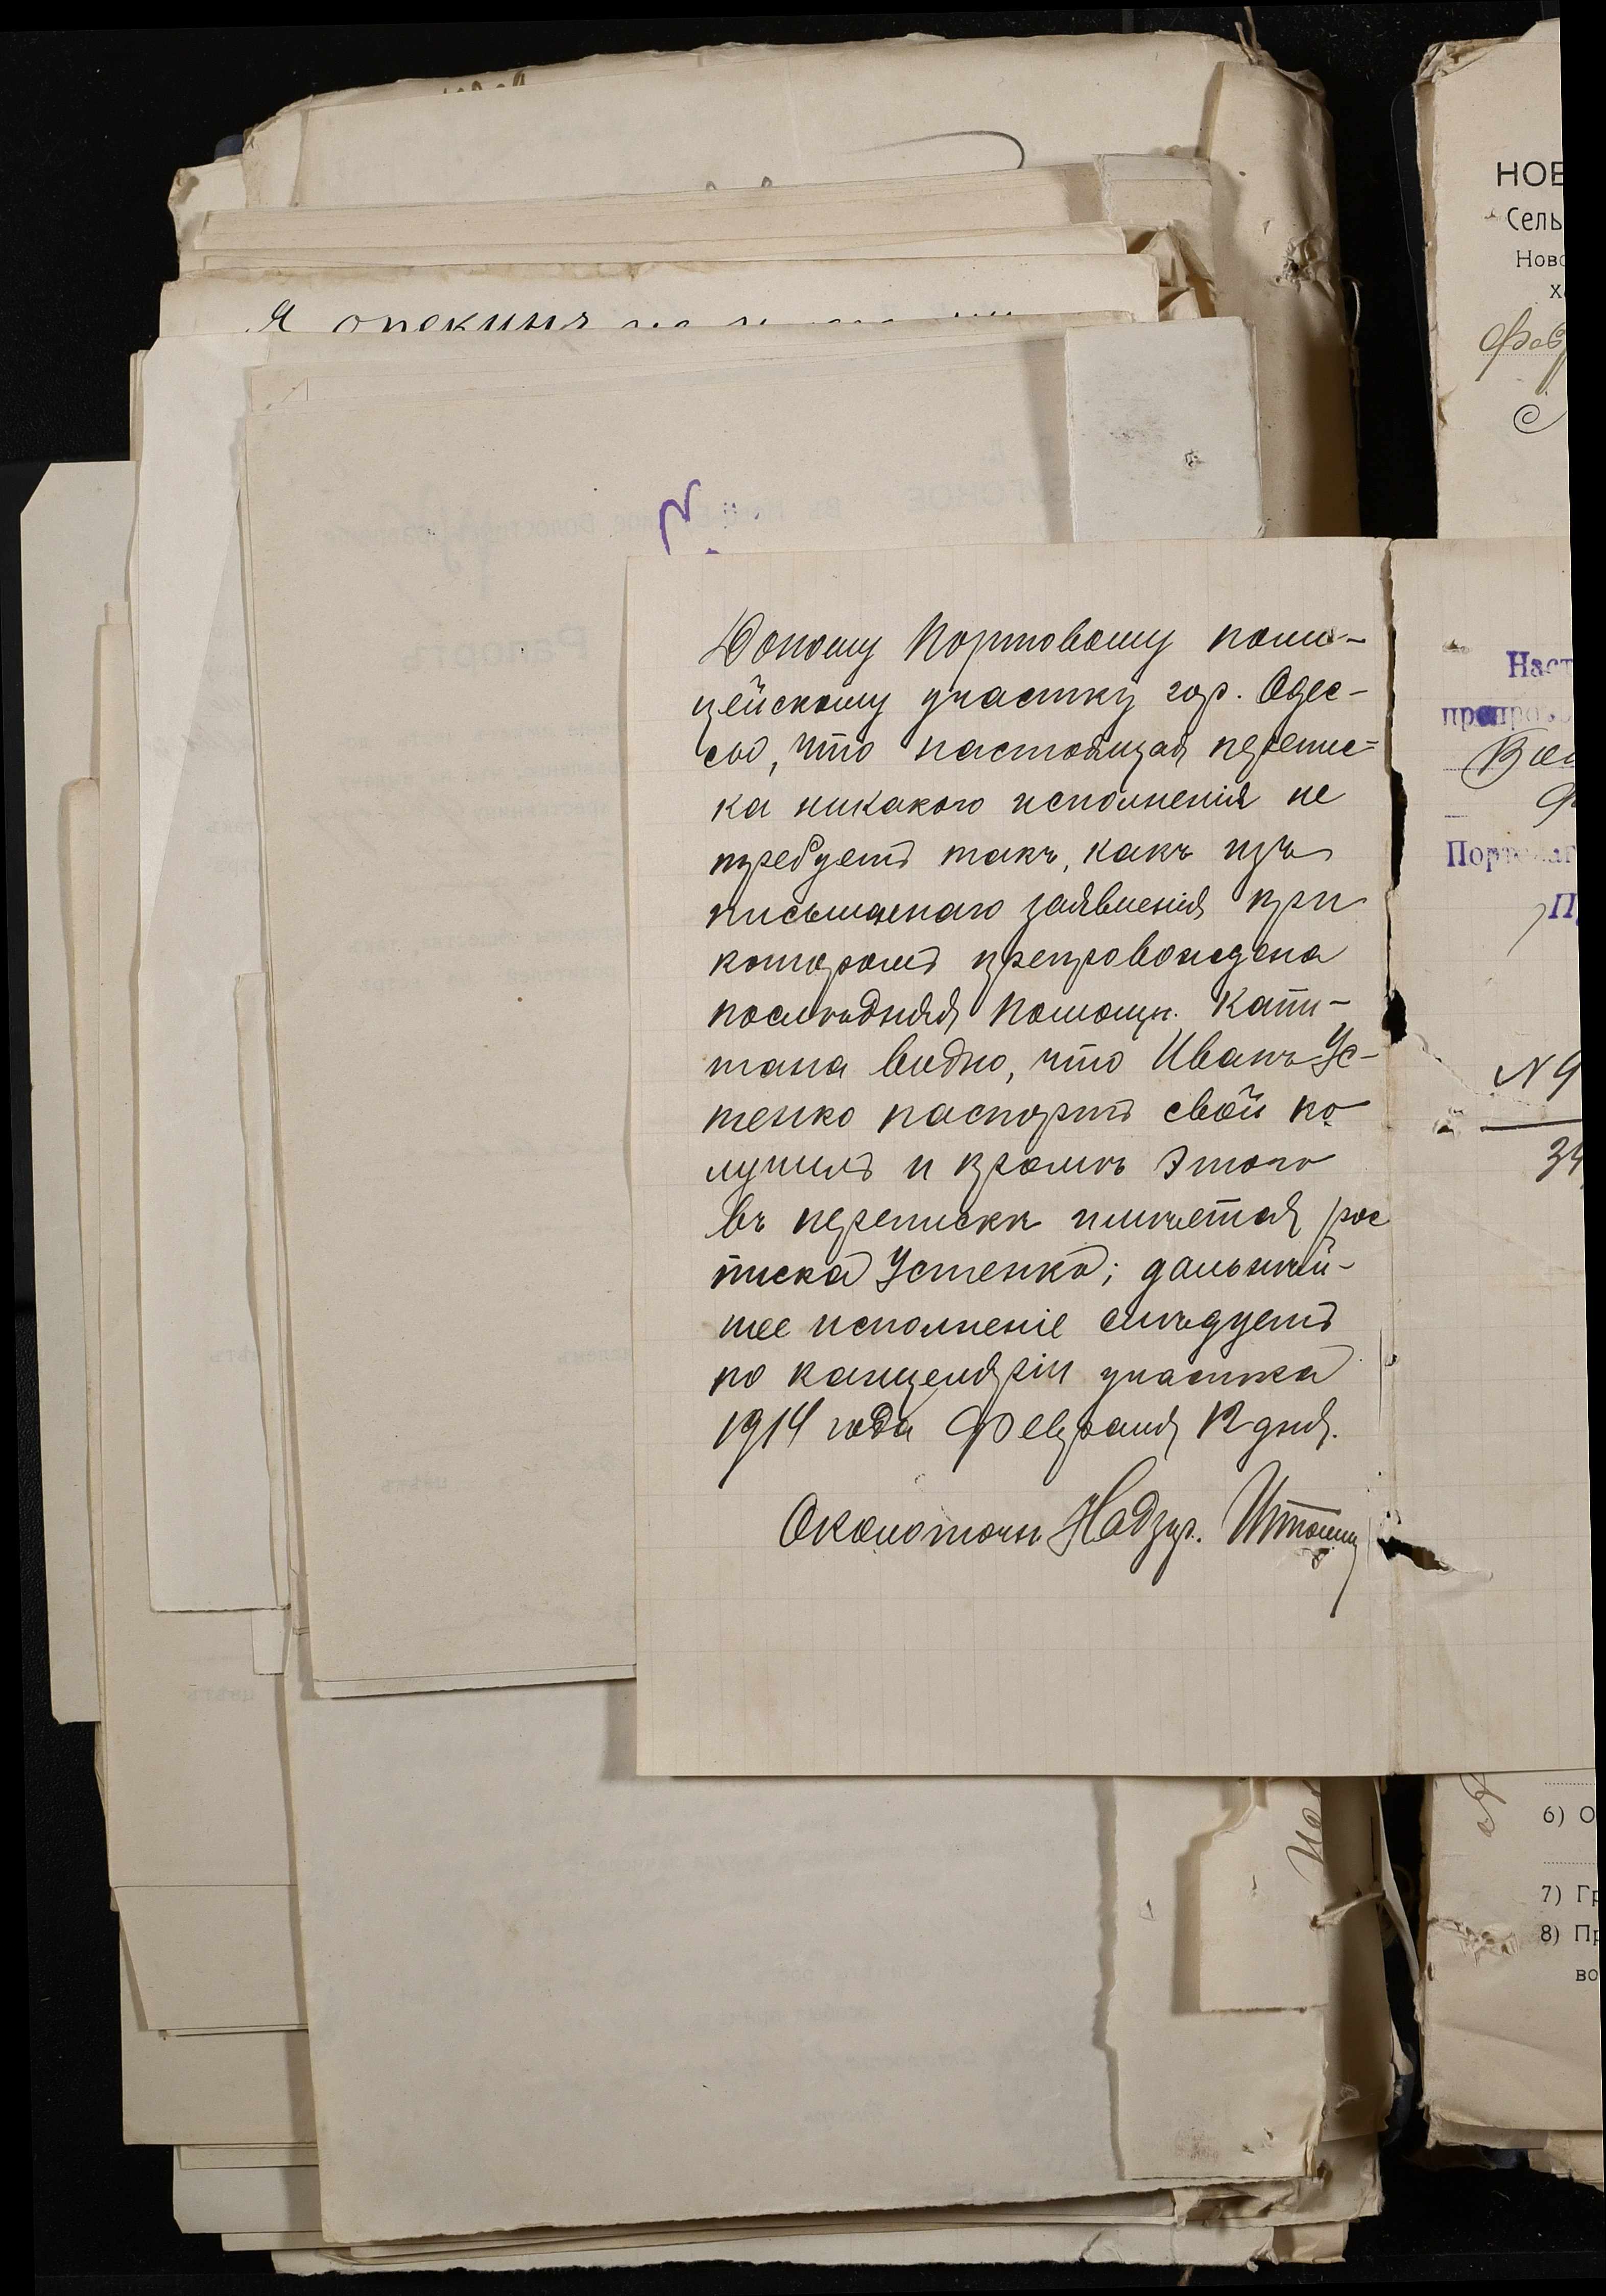 Я опекинъ
Доношу Портовому поли-
цейскому участку гор. Одес-
сы, что настоящая перепис-
ка никакого исполненія не
требуетъ такъ, какъ изъ
письменаго заявленія при
которомъ препровождена
послѣдняя Помощн. Капи-
тана видно, что Иванъ Ус-
тенко паспортъ свой по-
лучилъ и кромѣ этого
въ перепискѣ имѣется рос
писка Устенко; дальнѣй-
шее исполненіе слѣдуетъ
по канцеляріи участка
1914 года Февраля 12 дня.
Околоточн Надзир.
НОВ
Сель
Ново
Х
Фев
Наст
препров
Портоваг
П
N 9
34
6) О
7) Гр
8) Пр
во